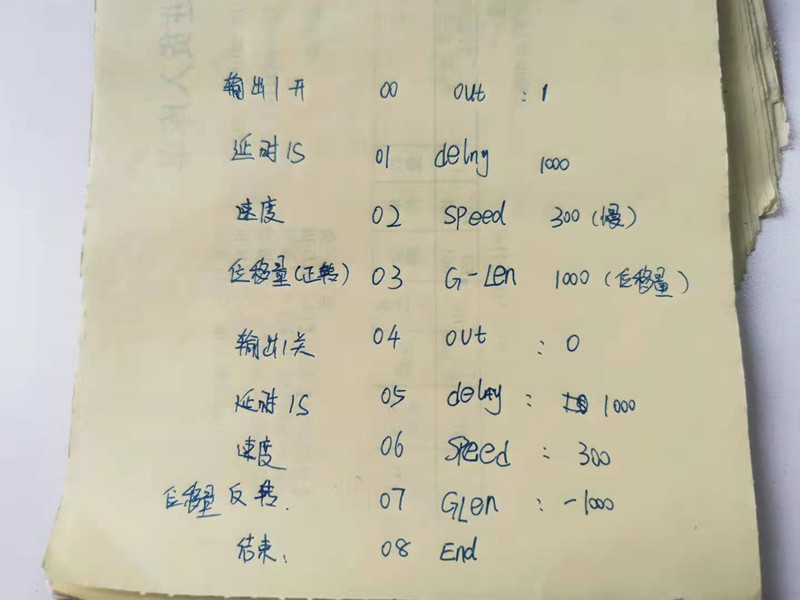 输出1开 00 out : 1
延时1S 01 delay 1000
速度 02 speed 300 (慢)
位移量(正转) 03 G-Len 1000 (位移量)
输出1关 04 out : 0
延时1S 05 delay : 1000
速度 06 speed : 300
位移量反转. 07 GLen : -1000
结束. 08 End